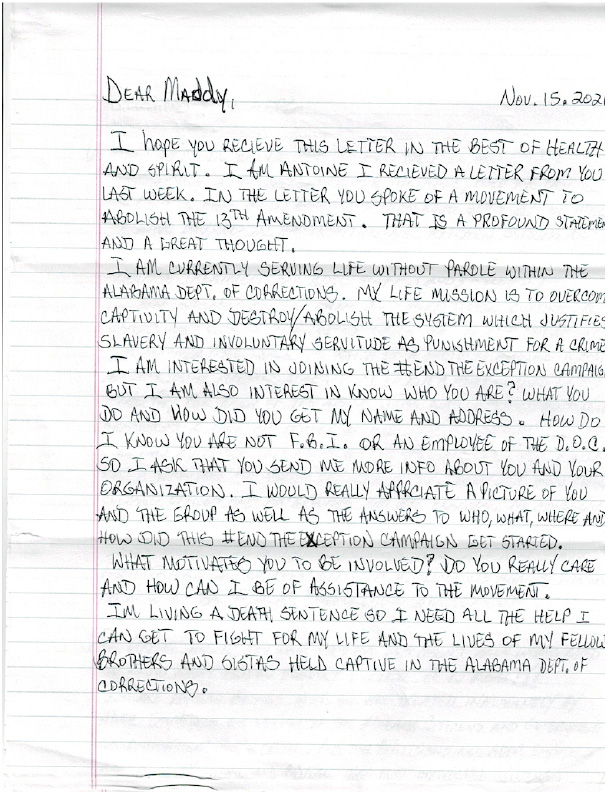 Dear Maddy,
Nov. 15. 202
I hope you recieve this letter in the best of health
and spirit. I am Antoine I recieved a letter from you
last week. In the letter you spoke of a movement to
abolish the 13th Amendment. That is a profound stateme
and a great thought.
I am currently serving life without parole within the
Alabama Dept. of Corrections. My life mission is to overcom
captivity and destroy/abolish the system which justifies
slavery and involuntary servitude as punishment for a crime
I am interested in joining the #EndTheException campaig
but I am also interest in know who you are? What you
do and how did you get my name and address. How do
I know you are not F.B.I. or an employee of the D.O.C.
So I ask that you send me more info about you and your
organization. I would really apprciate a picture of you
and the group as well as the answers to who, what, where and
how did this #EndTheException campaign get started.
What motivates you to be involved? Do you really care
and how can I be of assistance to the movement.
Im living a death sentence so I need all the help I
can get to fight for my life and the lives of my fellow
brothers and sistas held captive in the Alabama Dept. of
Corrections.